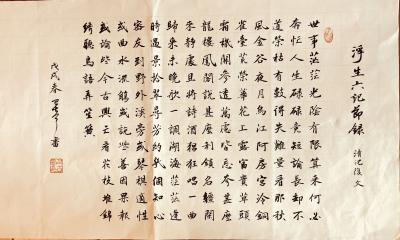 浮生六记節録 清沈復文
世事茫茫光陰有限算来何必
奔忙人生碌碌竞短論長却不
道榮枯有数得失難量看那秋
風金谷夜月烏江阿房宫冷銅
雀臺荒榮華花上露富貴草頭
霜機関参透萬慮皆忘夸甚麼
龍樓鳳閣説甚麼利鎖名韁閑
来静處且将詩酒猖狂唱一曲
歸来未晚歌一調湖海茫茫逢
時遇景拾翠尋芳約幾個知心
密友到野外溪旁或琴棋適性
或曲水流觴或説些善因果報
或論些今古興亡看花枝堆錦
綉聽鳥語弄笙簧
戊戌春 書